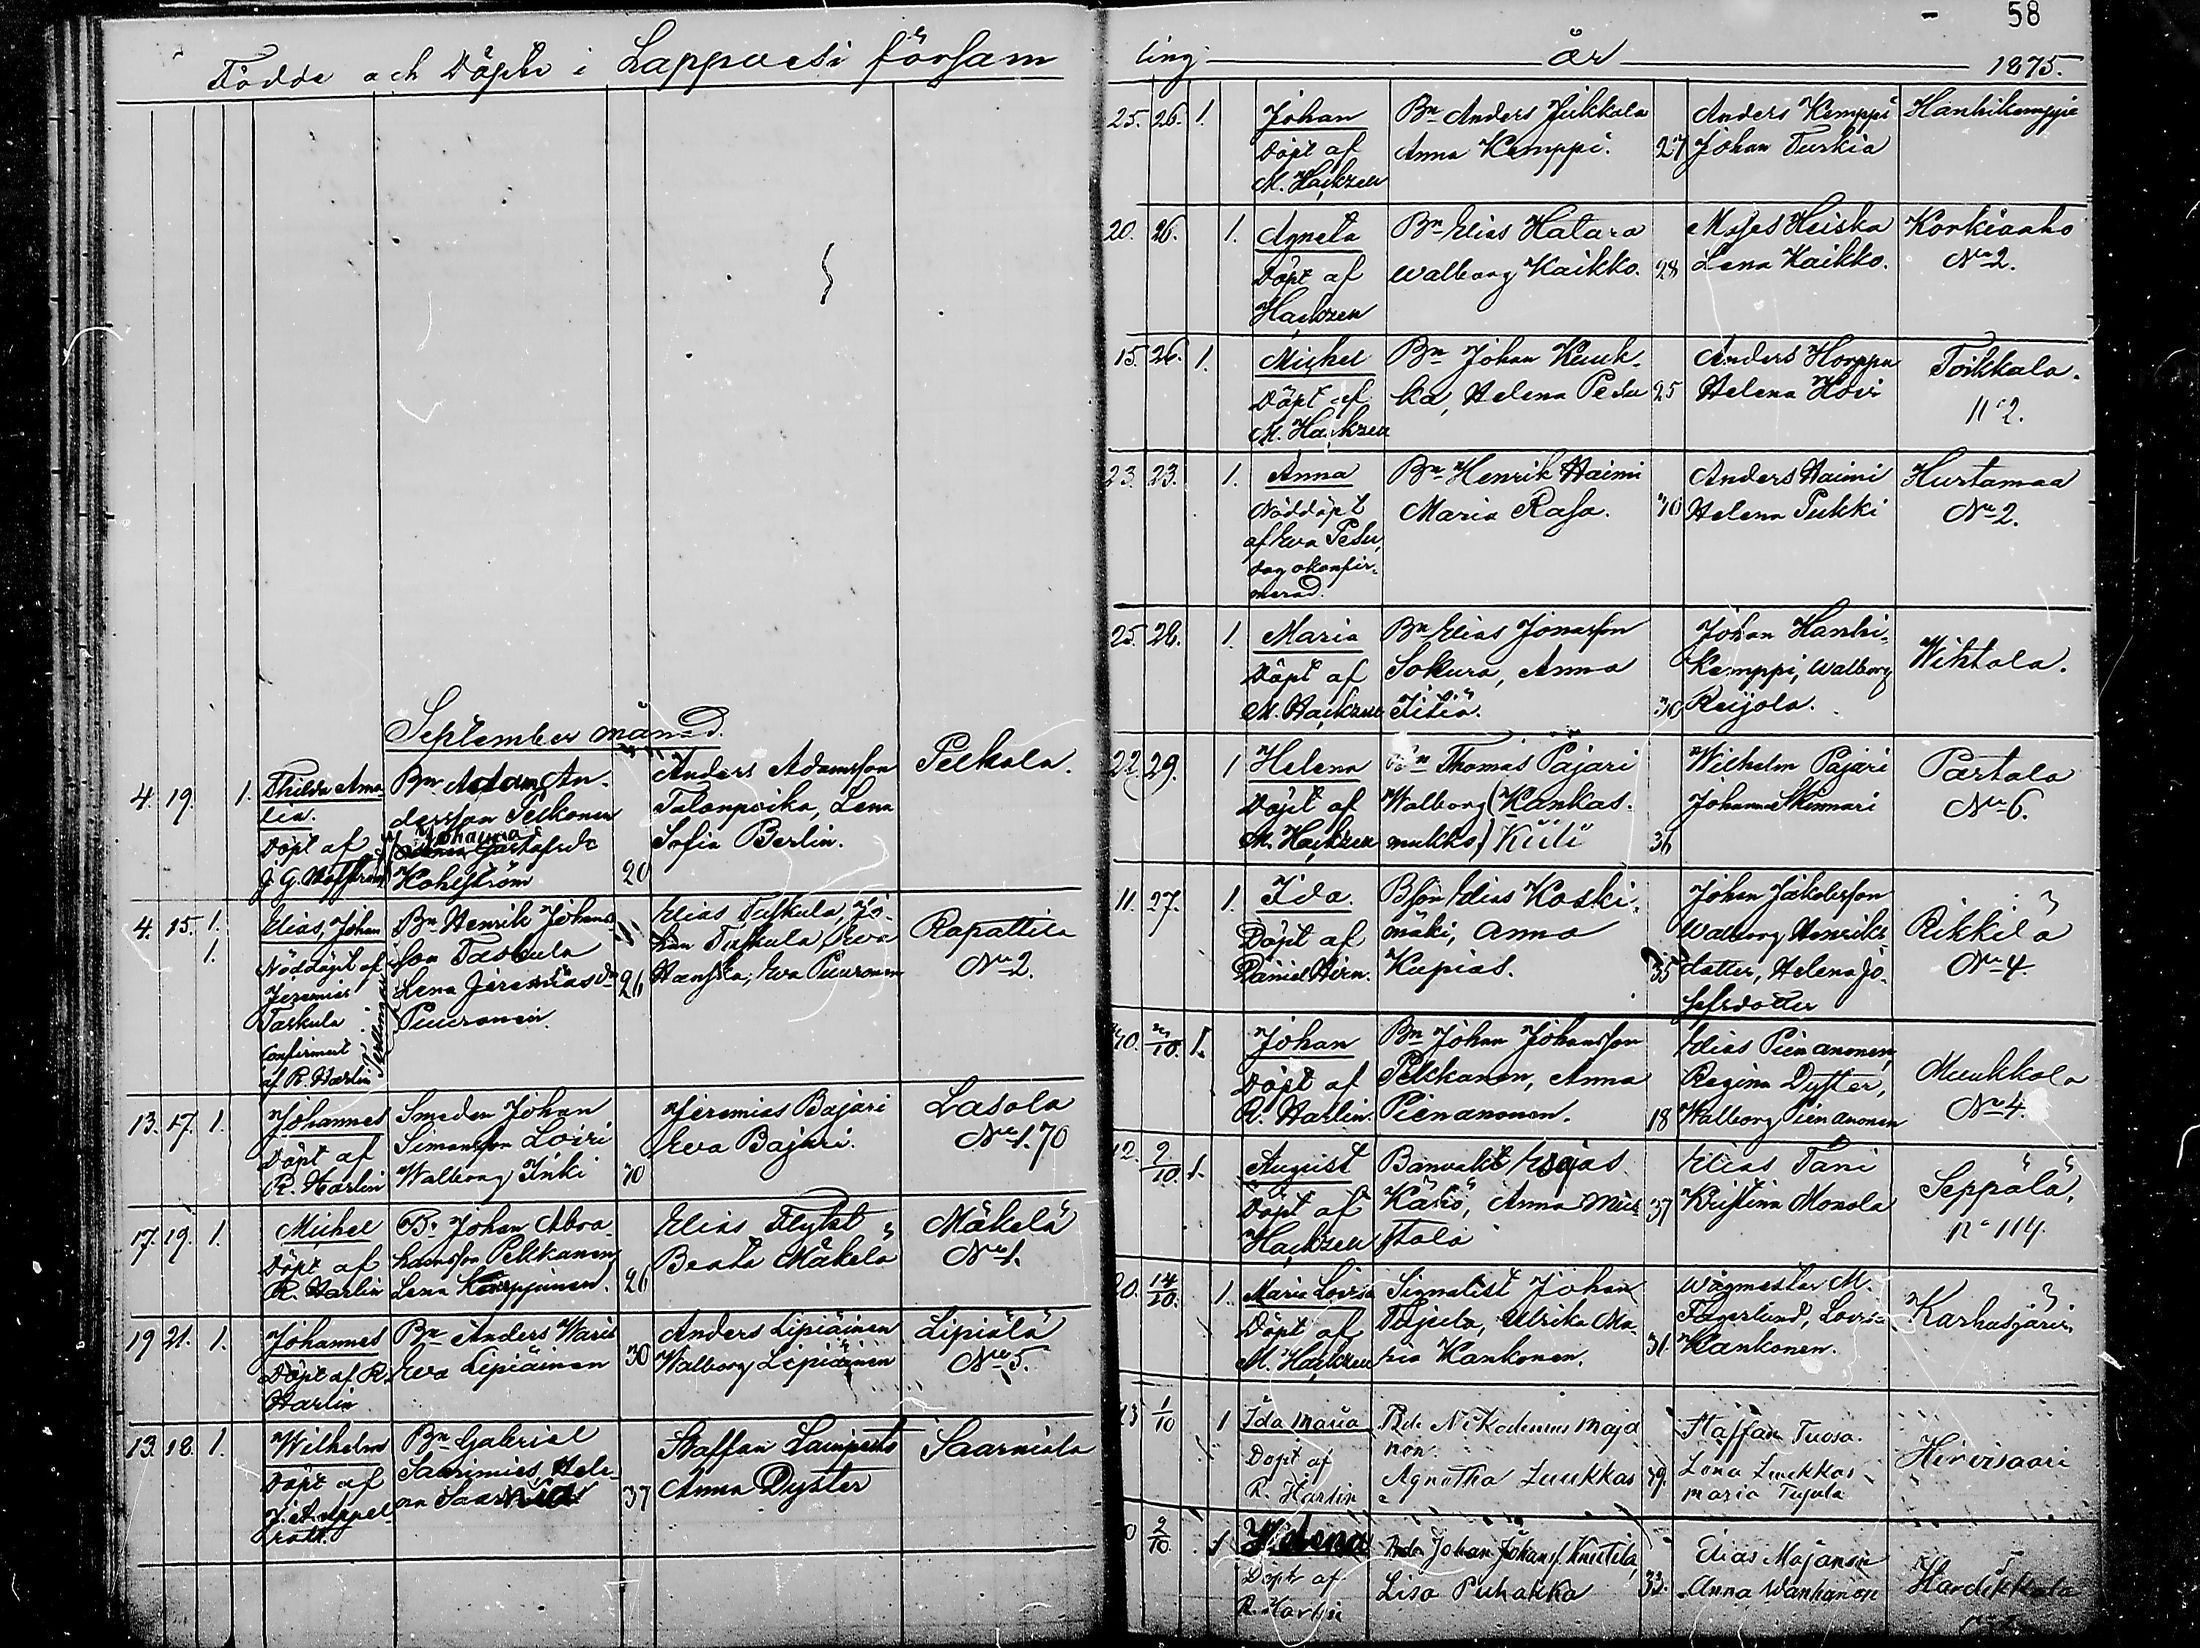 58
Födde och Döpte i Lappvesi församling år 1875.
September månad.
4. 19. 1. Thilda Ama-
lia.
Döpt af
Bn Adam An-
dersson Pelkonen
Johanna
Gustafsdr
Kohlström
20
Anders Adamsson
Talonpoika, Lena
Sofia Berlin.
Pelkola.
4. 15. 1. 1. Elias, Johan
Nöddöpt af
Jeremias
Taskula
Confirmert
af R. Harlin
Bn Henrik Johans
son Taskula
Lena Jeremiasdr
Puuronen
26
Elias Tuskula, Jo-
han Tuskula, Eva
Eva Puuronen
Rapattila
No 2.
13. 17. 1. Johannes
Döpt af
R. Harlin
Smeden Johan
Simonsson Loiri
Walborg Inki
40
Jeremias Bajari
Eva Bajari.
Lasola
No 1. 70
17. 19. 1. Michel
Döpt af
R. Harlin
Bn Johan Abra-
hamsson Pelkkanen
Lena Karppinen.
26
Elias Flykt
Beata Mäkelä
Mäkelä
No 1.
19 21. 1. Johannes
Döpt af R.
Harlin
Bn Anders Waris
Eva Lipiäinen
30
Anders Lipiäinen
Walborg Lipiäinen
Lipiälä
No 5.
13. 18. 1. Wilhelm
Döpt af
J. A. Appel-
roth.
Bn Gabriel
Saarimies, Hele-
na Saarnia
37
Staffan Lampinto
Anna Dyster
Saarniala
25. 26. 1. Johan
Döpt af
M. Hackzell
Bn Anders Jukkala
Anna Kemppi.
27
Anders Kemppi
Johan Turkia
Hanhikemppi
20. 26. 1. Agneta
Döpt af
Hackzell
Bn Elias Hatara
Walborg Kaikko.
28
Moses Heiska
Lena Kaikko.
Korkiaaho
No 2.
15. 26. 1. Michel
Döpt af
M. Hackzell
Bn Johan Kuuk-
ka, Helena Pesu
25
Anders Horppu
Helena Hovi
Toikkala.
No 2.
23. 23. 1. Anna
Nöddöpt
af Eva Pesu,
dog okonfir-
merad.
Bn Henrik Haimi
Maria Rasa.
40
Anders Haimi
Helena Pukki
Hurtamaa
No 2.
25. 28. 1. Maria
Döpt af
M. Hackzell
Bn Elias Jonasson
Sokura, Anna
Titiä.
30
Johan Hanhi-
kemppi, Walborg
Reijola.
Wihtola.
22. 29. 1 Helena
Döpt af
M. Hackzell
Bn Thomas Pajari
Walborg (Kankas-
mukko) Kiili
36
Wilhelm Pajari
Johanna Skinnari
Partala
No 6.
11. 27. 1. Ida.
Döpt af
Daniel Hirn.
Bson Elias Koski-
mäki, Anna
Kupias.
35
Johan Jakobsson
Walborg Henriks
dotter, Helena Jo-
sefsdotter
Rikkilä
No 4.
10. 1. Johan
Döpt af
R. Harlin.
Bn Johan Johansson
Pelkkanen, Anna
Pienanonen.
18
Elias Pienanonen,
Regina Dyster,
Walborg Pienanonen
Muukkola
No 4.
12. 2/10. 1. August
Döpt af
Hackzell
Banvakt Esajas
Käkö, Anna Mus
tola
37
Elias Tani
Kristina Monola
Seppälä,
No 114.
20. 14/10. 1. Maria Lovisa
Döpt af
M. Hackzell
Signalist Johan
Tujula, Ulrika Ma-
ria Kankonen.
31.
Wågmester M.
Fagerlund, Lovisa
Kankonen.
Karhusjärvi
1/10 1 Ida Maria
Döpt af
R. Harlin
Bde Nikodemus Maja
nen
Agnetha Luukkas
Staffan Tuosa.
Lena Luukkas
Maria Tujula
Hirvisaari
2/10 1 Helena
Döpt af
R. Harlin
Bde Johan Johanss. Knuutila,
Lisa Puhakka
33.
Elias Majanen
Anna Wanhanen
Hardikkala